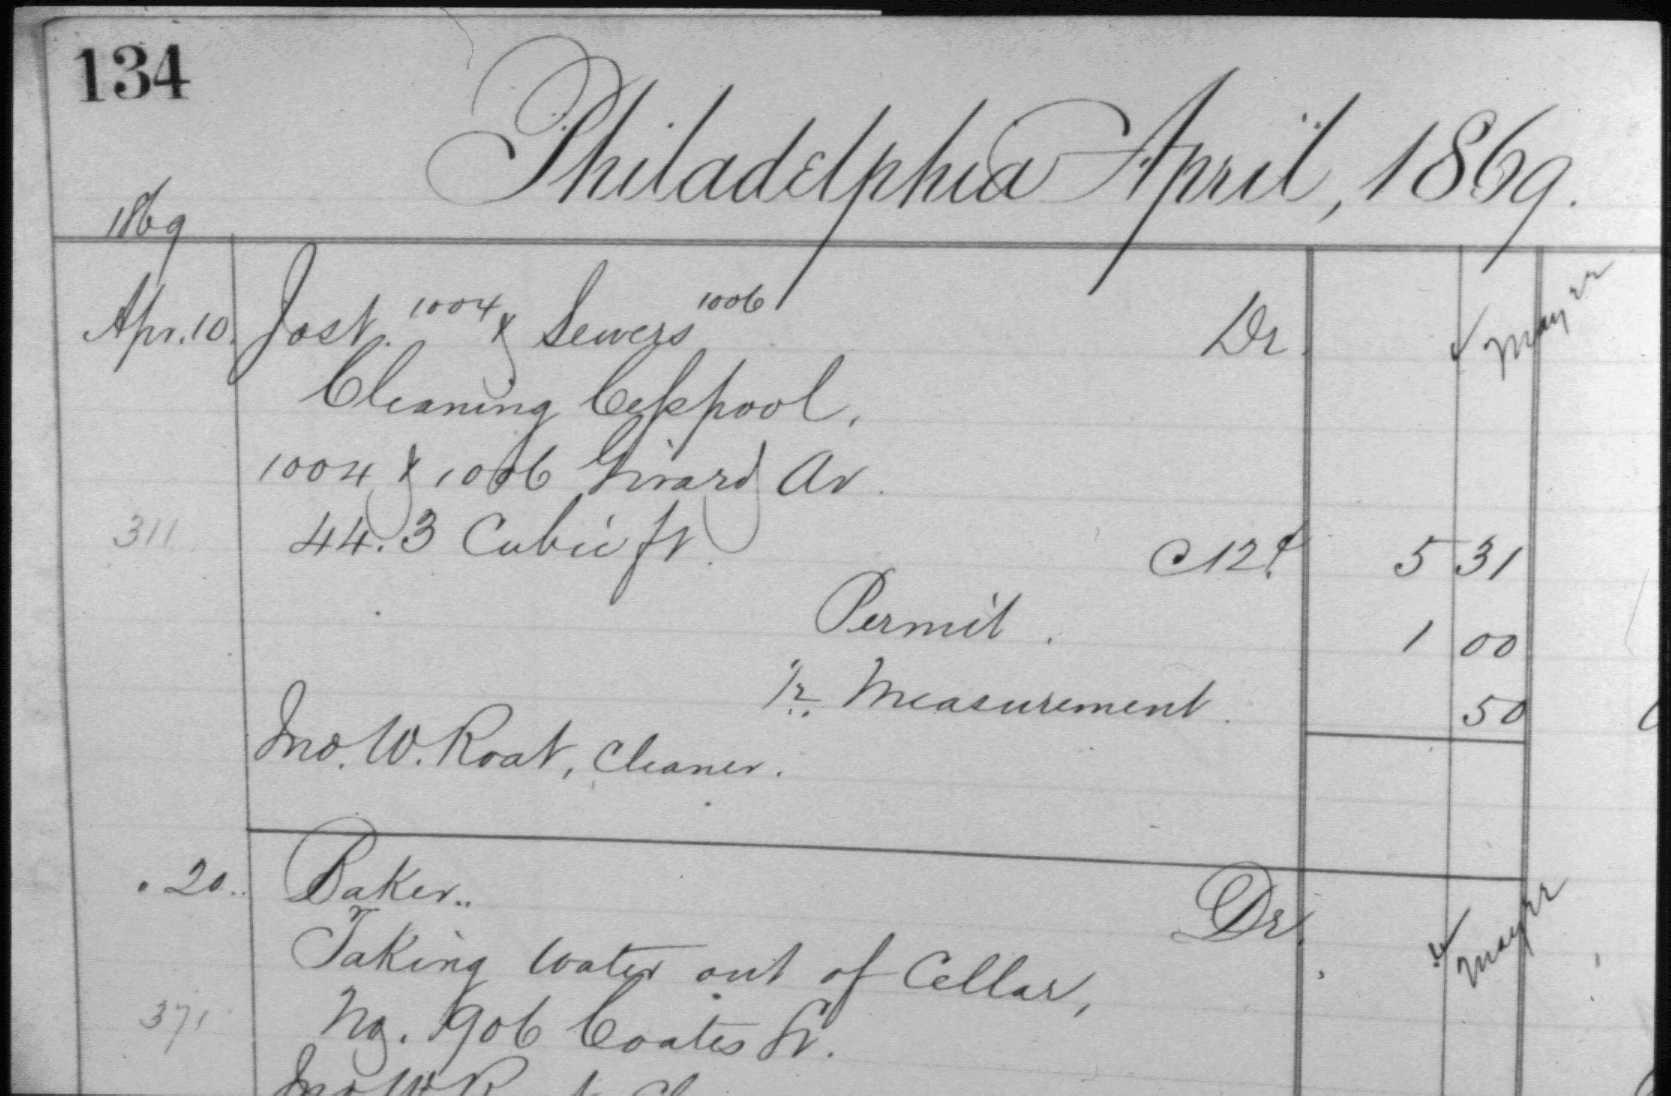 134
Philadelphia April, 1869.
1869
Apr. 10. Jost. 1004 & Sewers 1006 Dr.
Cleaning Cesspool,
1004 & 1006 Girard Av.
311 44.3 Cubic ft. @ 12¢ 5 31
Permit. 1 00
1/2 Measurement. 50
Jno. W. Roat, Cleaner.
" 20. Baker.. Dr.
Taking Water out of Cellar,
371 No. 906 Coates St.
Jno W R